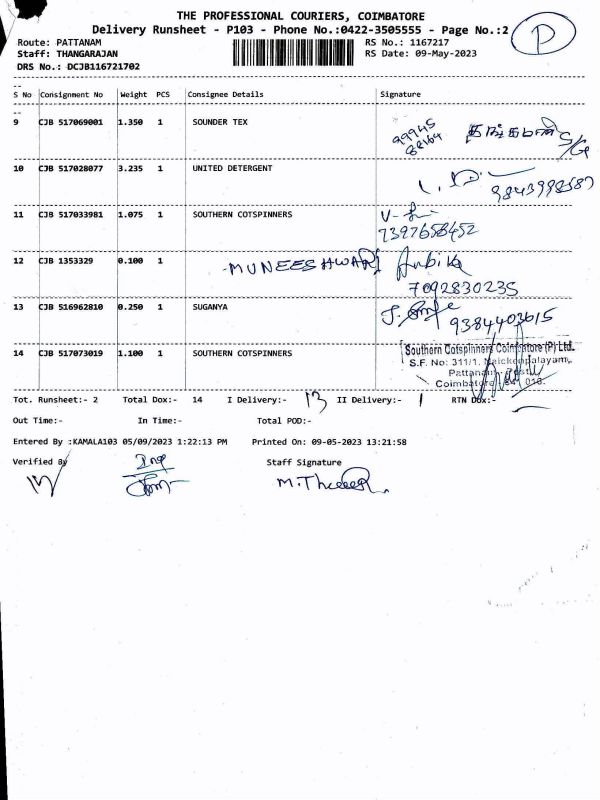 THE PROFESSIONAL COURIERS, COIMBATORE
Delivery Runsheet - P103 - Phone No.:0422-3505555 - Page No.:2
P
Route: PATTANAM
RS No.: 1167217
Staff: THANGARAJAN
RS Date: 09-May-2023
DRS No.: DCJB116721702
S No Consignment No Weight PCS Consignee Details Signature
9 CJB 517069001 1.350 1 SOUNDER TEX 99945
10 CJB 517028077 3.235 1 UNITED DETERGENT
11 CJB 517033981 1.075 1 SOUTHERN COTSPINNERS
7397658452
12 CJB 1353329 0.100 1 MUNEESHWARI Ambika
7092830235
13 CJB 516962810 0.250 1 SUGANYA
9384403615
14 CJB 517073019 1.100 1 SOUTHERN COTSPINNERS
Southern Cotspinners Coimbatore (P) Ltd.
S.F. No: 311/1,
Pattanam
Coimbatore
Tot. Runsheet:- 2 Total Dox:- 14 I Delivery:- 13 II Delivery:- 1 RTN Dox:-
Out Time:- In Time:- Total POD:-
Entered By :KAMALA103 05/09/2023 1:22:13 PM Printed On: 09-05-2023 13:21:58
Verified By Staff Signature